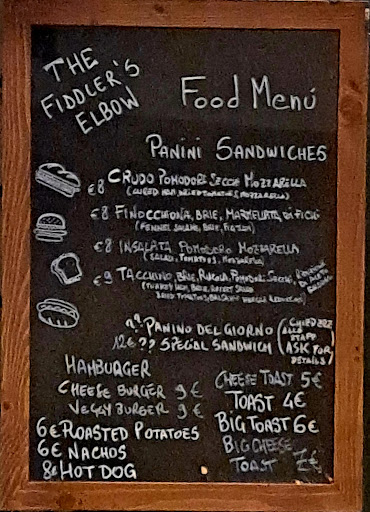 THE
FIDDLER'S
ELBOW
Food Menú
PANINI SANDWICHES
€8 CRUDO POMODORI SECCHI MOZZARELLA
(CURED HAM, DRIED TOMATOES, MOZZARELLA)
€8 FINOCCHIONA, BRIE, MARMELLATA DI FICHI
(FENNEL SALAME, BRIE, FIG JAM)
€8 INSALATA POMODORO MOZZARELLA
(SALAD, TOMATOES, MOZZARELLA)
€9 TACCHINO, BRIE, RUCOLA, POMODORI SECCHI,
(TURKEY HAM, BRIE, ROCKET SALAD
DRIED TOMATOES, BALSAMIC VINEGAR REDUCTION)
?? PANINO DEL GIORNO (CHIEDERE
ALLO
STAFF
12€ ?? SPECIAL SANDWICH ASK FOR
DETAILS)
HAMBURGER
CHEESE BURGER 9€
VEGGY BURGER 9€
6€ ROASTED POTATOES
6€ NACHOS
8€ HOT DOG
CHEESE TOAST 5€
TOAST 4€
BIG TOAST 6€
BIG CHEESE
TOAST 7€